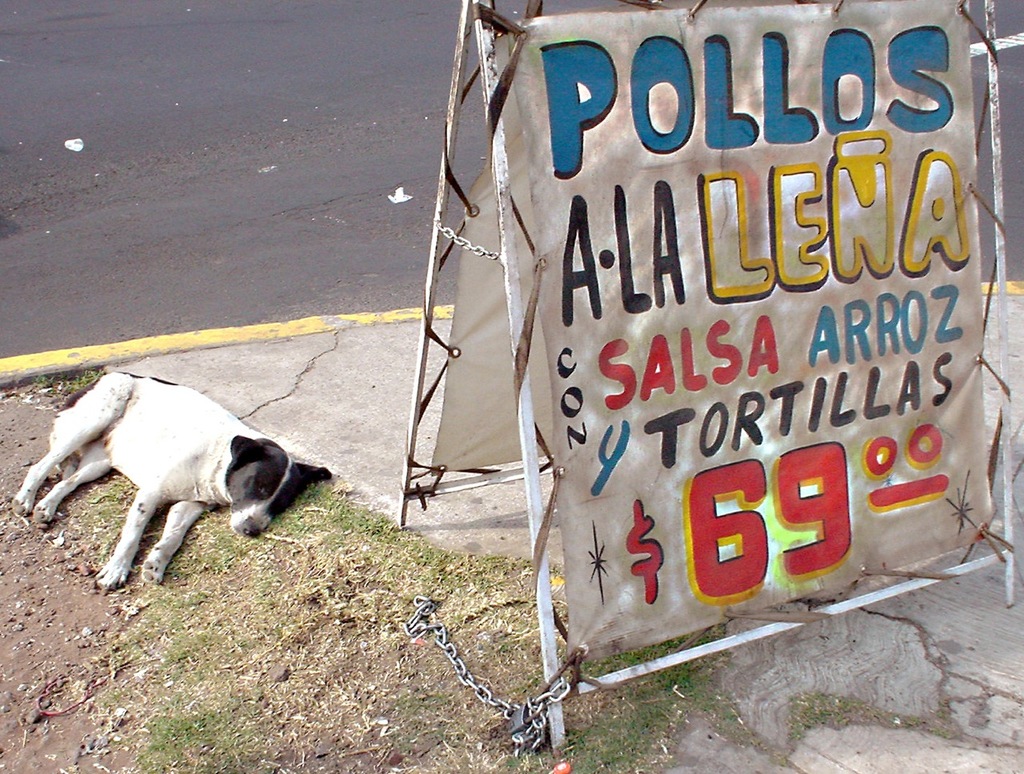 POLLOS
A·LA LEÑA
CON SALSA ARROZ
Y TORTILLAS
$69.00